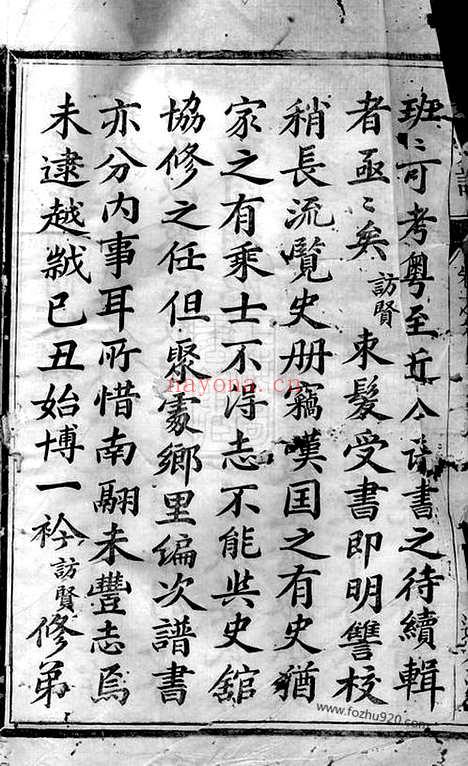 班〻可考粤至近今譜書之待續輯
者亟〻矣訪賢束髮受書即明讐校
稍長流覽史册竊嘆国之有史猶
家之有乘士不得志不能與史舘
協修之任但聚處鄉里编次譜書
亦分内事耳所惜南翮未豐志焉
未逮越㦸已丑始博一衿訪賢修弟
nayona.cn
www.fozhu920.com